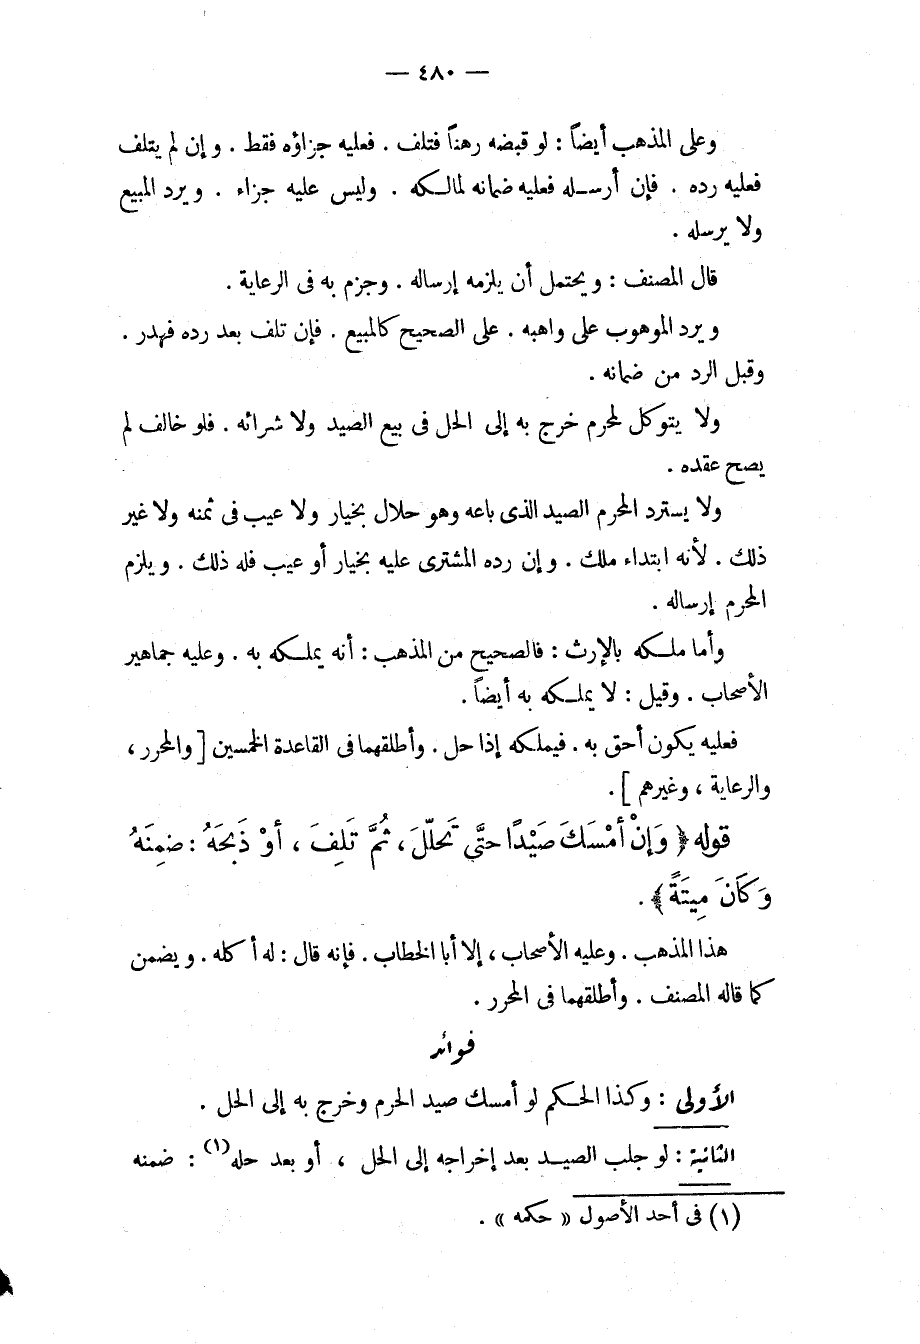 — ٤٨٠ —
وعلى المذهب أيضاً : لو قبضه رهناً فتلف . فعليه جزاؤه فقط . وإن لم يتلف
فعليه رده . فإن أرسله فعليه ضمانه لمالكه . وليس عليه جزاء . ويرد المبيع
ولا يرسله .
قال المصنف : ويحتمل أن يلزمه إرساله . وجزم به فى الرعاية .
ويرد الموهوب على واهبه . على الصحيح كالمبيع . فإن تلف بعد رده فهدر .
وقبل الرد من ضمانه .
ولا يتوكل لمحرم خرج به إلى الحل فى بيع الصيد ولا شرائه . فلو خالف لم
يصح عقده .
ولا يسترد المحرم الصيد الذى باعه وهو حلال بخيار ولا عيب فى ثمنه ولا غير
ذلك . لأنه ابتداء ملك . وإن رده المشترى عليه بخيار أو عيب فله ذلك . ويلزم
المحرم إرساله .
وأما ملكه بالإرث : فالصحيح من المذهب : أنه يملكه به . وعليه جماهير
الأصحاب . وقيل : لا يملكه به أيضاً .
فعليه يكون أحق به . فيملكه إذا حل . وأطلقهما فى القاعدة الخمسين [ والمحرر ،
والرعاية ، وغيرهم ] .
قوله ﴿ وَإِنْ أَمْسَكَ صَيْدًا حتَّى تَحلّلَ ، ثُمَّ تَلِفَ ، أوْ ذَبحَهُ : ضمِنَهُ
وَكَانَ مِيتَةً ﴾ .
هذا المذهب . وعليه الأصحاب ، إلا أبا الخطاب . فإنه قال : له أكله . ويضمن
كما قاله المصنف . وأطلقهما فى المحرر .
فوائد
الأولى : وكذا الحكم لو أمسك صيد الحرم وخرج به إلى الحل .
الثانية : لو جلب الصيد بعد إخراجه إلى الحل ، أو بعد حله (١) : ضمنه
(١) فى أحد الأصول « حكمه » .